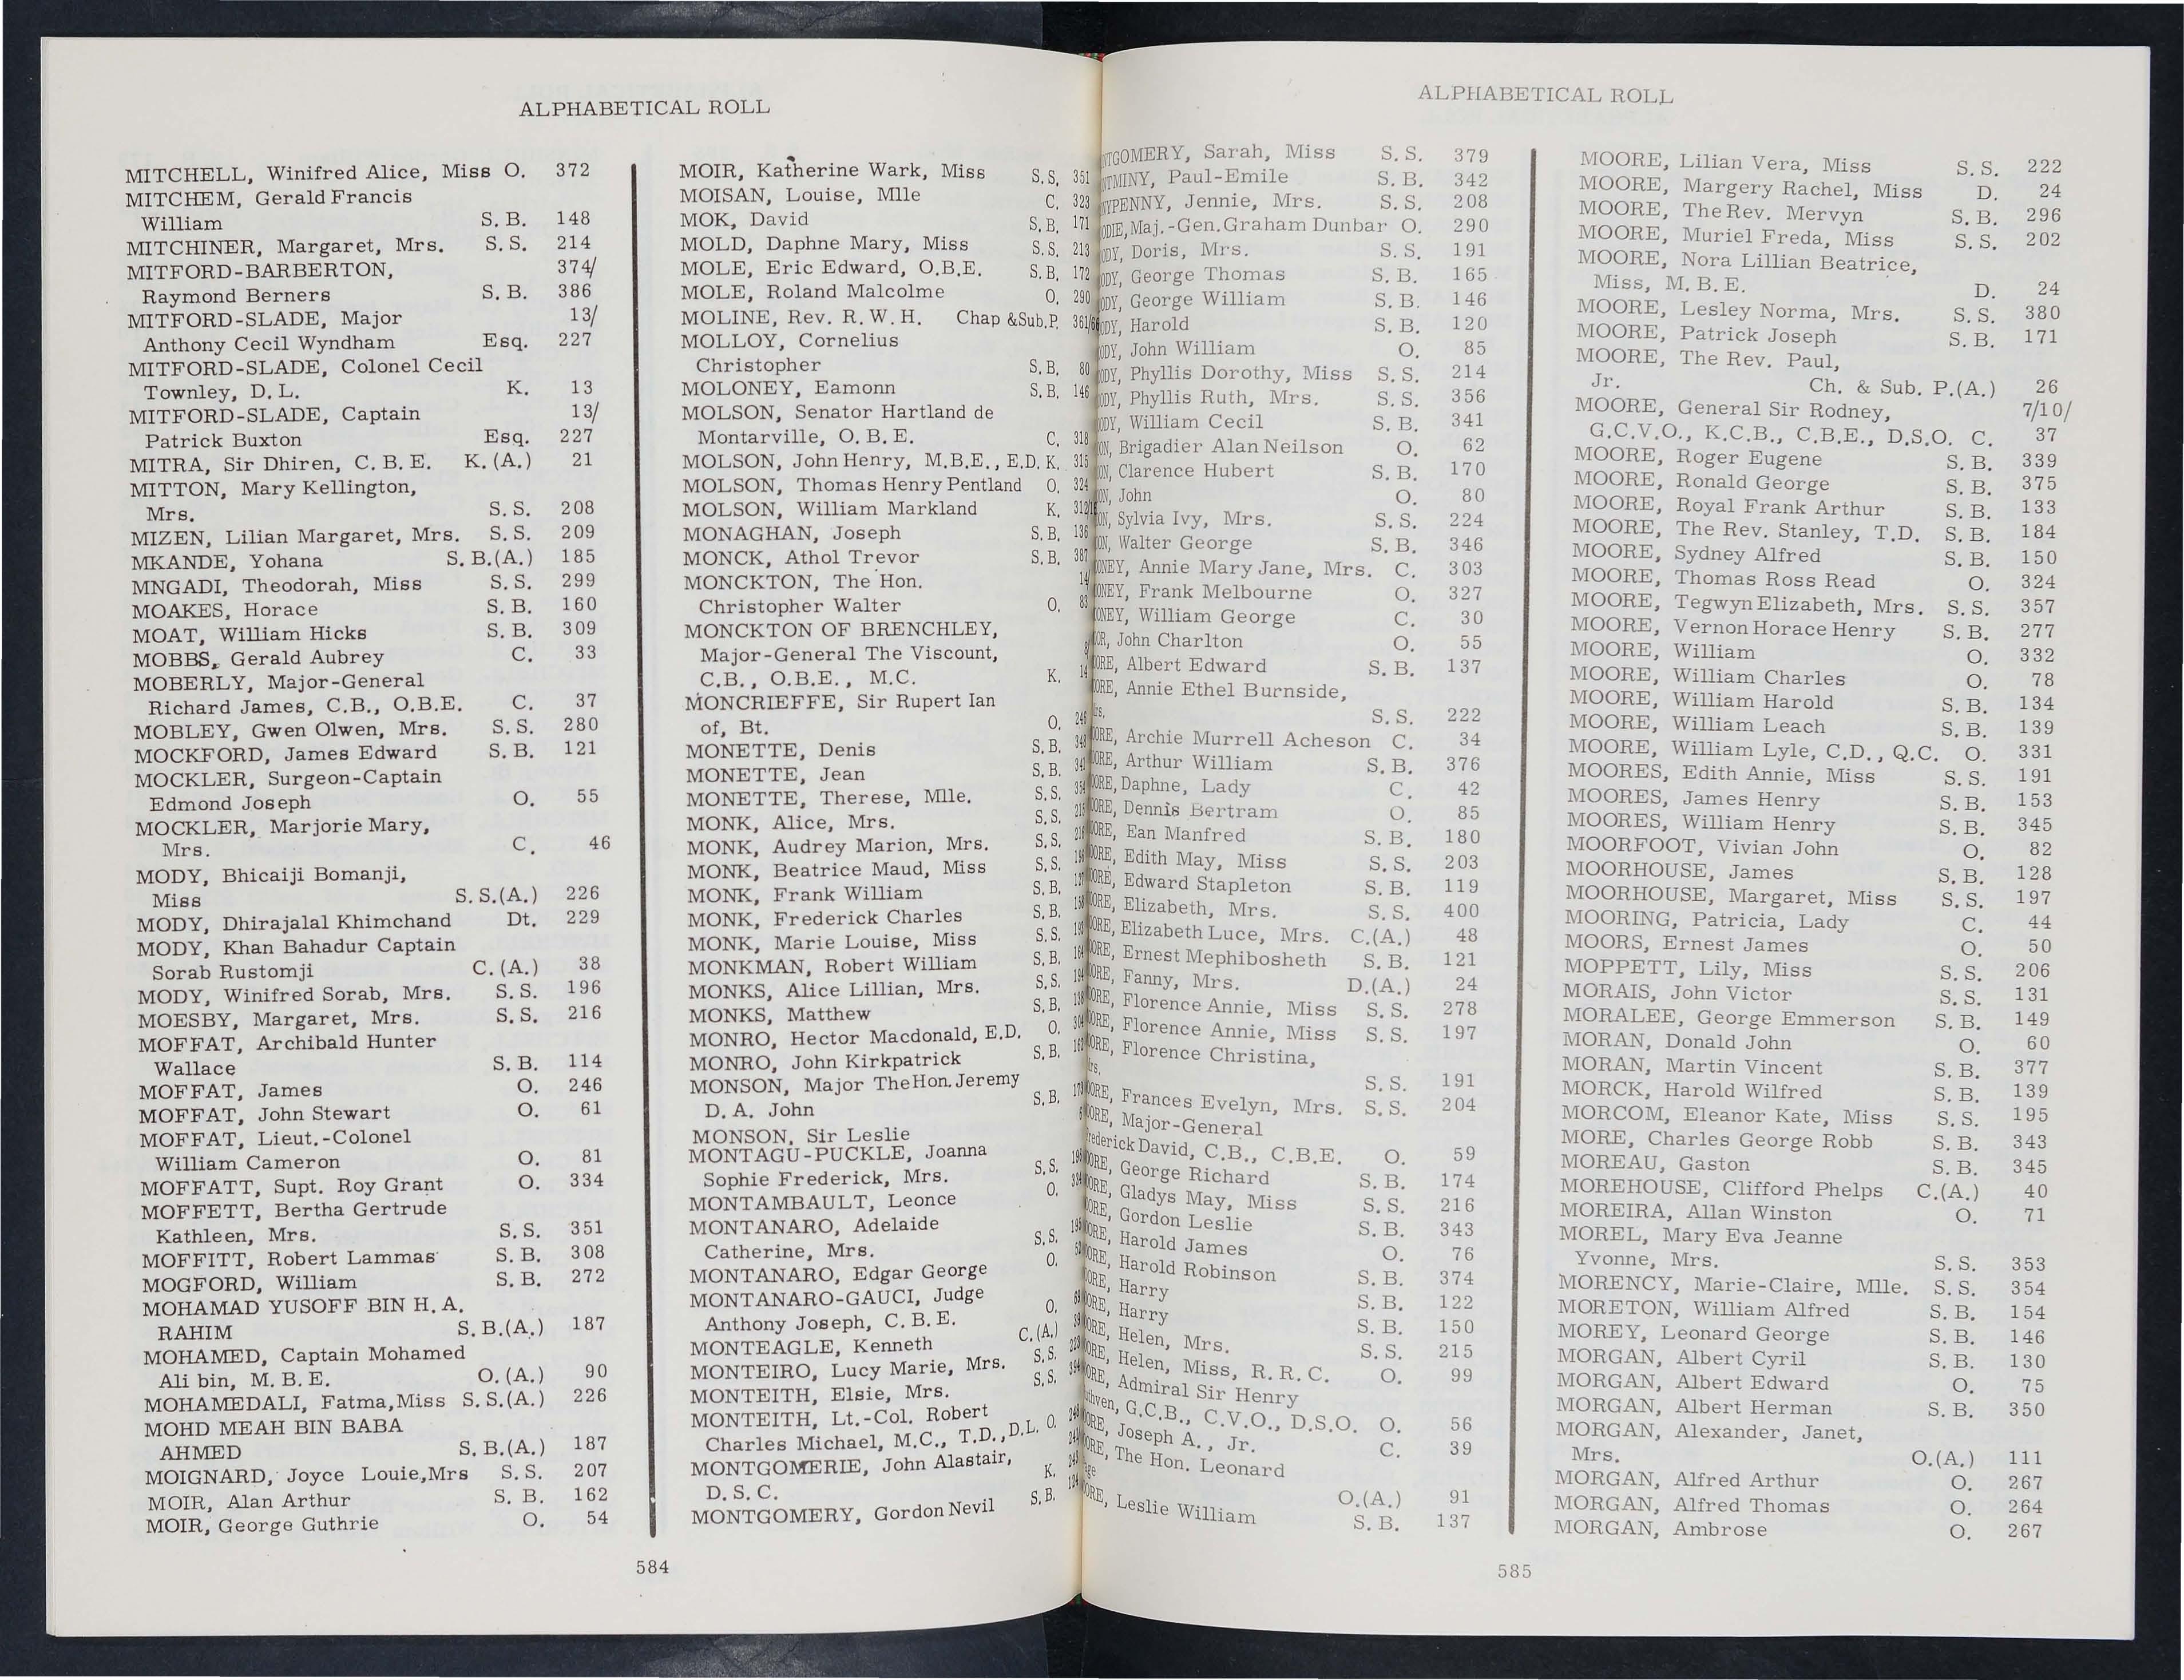 ALPHABETICAL ROLL
MITCHELL, Winifred Alice, Miss O. 372
MITCHEM, Gerald Francis
William S. B. 148
MITCHINER, Margaret, Mrs. S. S. 214
MITFORD-BARBERTON, 374/
Raymond Berners S. B. 386
MITFORD-SLADE, Major 13/
Anthony Cecil Wyndham Esq. 227
MITFORD-SLADE, Colonel Cecil
Townley, D. L. K. 13
MITFORD-SLADE, Captain 13/
Patrick Buxton Esq. 227
MITRA, Sir Dhiren, C. B. E. K. (A.) 21
MITTON, Mary Kellington,
Mrs. S. S. 208
MIZEN, Lilian Margaret, Mrs. S. S. 209
MKANDE, Yohana S. B.(A.) 185
MNGADI, Theodorah, Miss S. S. 299
MOAKES, Horace S. B. 160
MOAT, William Hicks S. B. 309
MOBBS, Gerald Aubrey C. 33
MOBERLY, Major-General
Richard James, C.B., O.B.E. C. 37
MOBLEY, Gwen Olwen, Mrs. S. S. 280
MOCKFORD, James Edward S. B. 121
MOCKLER, Surgeon-Captain
Edmond Joseph O. 55
MOCKLER, Marjorie Mary,
Mrs. C. 46
MODY, Bhicaiji Bomanji,
Miss S. S.(A.) 226
MODY, Dhirajalal Khimchand Dt. 229
MODY, Khan Bahadur Captain
Sorab Rustomji C. (A.) 38
MODY, Winifred Sorab, Mrs. S. S. 196
MOESBY, Margaret, Mrs. S. S. 216
MOFFAT, Archibald Hunter
Wallace S. B. 114
MOFFAT, James O. 246
MOFFAT, John Stewart O. 61
MOFFAT, Lieut.-Colonel
William Cameron O. 81
MOFFATT, Supt. Roy Grant O. 334
MOFFETT, Bertha Gertrude
Kathleen, Mrs. S. S. 351
MOFFITT, Robert Lammas S. B. 308
MOGFORD, William S. B. 272
MOHAMAD YUSOFF BIN H. A.
RAHIM S. B.(A.) 187
MOHAMED, Captain Mohamed
Ali bin, M. B. E. O. (A.) 90
MOHAMEDALI, Fatma, Miss S. S.(A.) 226
MOHD MEAH BIN BABA
AHMED S. B.(A.) 187
MOIGNARD, Joyce Louie, Mrs S. S. 207
MOIR, Alan Arthur S. B. 162
MOIR, George Guthrie O. 54
MOIR, Katherine Wark, Miss S. S. 351
MOISAN, Louise, Mlle C. 323
MOK, David S. B. 171
MOLD, Daphne Mary, Miss S. S. 213
MOLE, Eric Edward, O.B.E. S. B. 172
MOLE, Roland Malcolme O. 290
MOLINE, Rev. R. W. H. Chap &Sub.P. 361/
MOLLOY, Cornelius
Christopher S. B. 80
MOLONEY, Eamonn S. B. 146
MOLSON, Senator Hartland de
Montarville, O. B. E. C. 318
MOLSON, John Henry, M.B.E., E.D. K. 315
MOLSON, Thomas Henry Pentland O. 324
MOLSON, William Markland K. 312/
MONAGHAN, Joseph S. B. 136
MONCK, Athol Trevor S. B. 387
MONCKTON, The Hon. 14/
Christopher Walter O. 83
MONCKTON OF BRENCHLEY,
Major-General The Viscount,
C.B., O.B.E., M.C. K. 14
MONCRIEFFE, Sir Rupert Ian
of, Bt. O. 246
MONETTE, Denis S. B.
MONETTE, Jean S. B.
MONETTE, Therese, Mlle. S. S. 354
MONK, Alice, Mrs. S. S.
MONK, Audrey Marion, Mrs. S. S.
MONK, Beatrice Maud, Miss S. S.
MONK, Frank William S. B.
MONK, Frederick Charles S. B.
MONK, Marie Louise, Miss S. S.
MONKMAN, Robert William S. B.
MONKS, Alice Lillian, Mrs. S. S.
MONKS, Matthew S. B.
MONRO, Hector Macdonald, E.D. O.
MONRO, John Kirkpatrick S. B.
MONSON, Major The Hon. Jeremy
D. A. John S. B.
MONSON, Sir Leslie
MONTAGU-PUCKLE, Joanna
Sophie Frederick, Mrs. S. S.
MONTAMBAULT, Leonce O.
MONTANARO, Adelaide
Catherine, Mrs. S. S.
MONTANARO, Edgar George O.
MONTANARO-GAUCI, Judge
Anthony Joseph, C. B. E. O.
MONTEAGLE, Kenneth C. (A.)
MONTEIRO, Lucy Marie, Mrs. S. S.
MONTEITH, Elsie, Mrs. S. S.
MONTEITH, Lt.-Col. Robert
Charles Michael, M.C., T.D., D.L. O.
MONTGOMERIE, John Alastair,
D. S. C. K.
MONTGOMERY, Gordon Nevil S. B.
584
ALPHABETICAL ROLL
Sarah, Miss S. S. 379
Paul-Emile S. B. 342
Jennie, Mrs. S. S. 208
Maj.-Gen. Graham Dunbar O. 290
Doris, Mrs. S. S. 191
George Thomas S. B. 165
George William S. B. 146
Harold S. B. 120
John William O. 85
Phyllis Dorothy, Miss S. S. 214
Phyllis Ruth, Mrs. S. S. 356
William Cecil S. B. 341
Brigadier Alan Neilson O. 62
Clarence Hubert S. B. 170
John O. 80
Sylvia Ivy, Mrs. S. S. 224
Walter George S. B. 346
Annie Mary Jane, Mrs. C. 303
Frank Melbourne O. 327
William George C. 30
John Charlton O. 55
Albert Edward S. B. 137
Annie Ethel Burnside,
S. S. 222
Archie Murrell Acheson C. 34
Arthur William S. B. 376
Daphne, Lady C. 42
Dennis Bertram O. 85
Ean Manfred S. B. 180
Edith May, Miss S. S. 203
Edward Stapleton S. B. 119
Elizabeth, Mrs. S. S. 400
Elizabeth Luce, Mrs. C.(A.) 48
Ernest Mephibosheth S. B. 121
Fanny, Mrs. D.(A.) 24
Florence Annie, Miss S. S. 278
Florence Annie, Miss S. S. 197
Florence Christina,
S. S. 191
Frances Evelyn, Mrs. S. S. 204
Major-General
David, C.B., C.B.E. O. 59
George Richard S. B. 174
Gladys May, Miss S. S. 216
Gordon Leslie S. B. 343
Harold James O. 76
Harold Robinson S. B. 374
Harry S. B. 122
Harry S. B. 150
Helen, Mrs. S. S. 215
Helen, Miss, R. R. C. O. 99
Admiral Sir Henry
G.C.B., C.V.O., D.S.O. O. 56
Joseph A., Jr. C. 39
The Hon. Leonard
O.(A.) 91
Leslie William S. B. 137
MOORE, Lilian Vera, Miss S. S. 222
MOORE, Margery Rachel, Miss D. 24
MOORE, The Rev. Mervyn S. B. 296
MOORE, Muriel Freda, Miss S. S. 202
MOORE, Nora Lillian Beatrice,
Miss, M. B. E. D. 24
MOORE, Lesley Norma, Mrs. S. S. 380
MOORE, Patrick Joseph S. B. 171
MOORE, The Rev. Paul,
Jr. Ch. & Sub. P.(A.) 26
MOORE, General Sir Rodney, 7/10/
G.C.V.O., K.C.B., C.B.E., D.S.O. C. 37
MOORE, Roger Eugene S. B. 339
MOORE, Ronald George S. B. 375
MOORE, Royal Frank Arthur S. B. 133
MOORE, The Rev. Stanley, T.D. S. B. 184
MOORE, Sydney Alfred S. B. 150
MOORE, Thomas Ross Read O. 324
MOORE, Tegwyn Elizabeth, Mrs. S. S. 357
MOORE, Vernon Horace Henry S. B. 277
MOORE, William O. 332
MOORE, William Charles O. 78
MOORE, William Harold S. B. 134
MOORE, William Leach S. B. 139
MOORE, William Lyle, C.D., Q.C. O. 331
MOORES, Edith Annie, Miss S. S. 191
MOORES, James Henry S. B. 153
MOORES, William Henry S. B. 345
MOORFOOT, Vivian John O. 82
MOORHOUSE, James S. B. 128
MOORHOUSE, Margaret, Miss S. S. 197
MOORING, Patricia, Lady C. 44
MOORS, Ernest James O. 50
MOPPETT, Lily, Miss S. S. 206
MORAIS, John Victor S. S. 131
MORALEE, George Emmerson S. B. 149
MORAN, Donald John O. 60
MORAN, Martin Vincent S. B. 377
MORCK, Harold Wilfred S. B. 139
MORCOM, Eleanor Kate, Miss S. S. 195
MORE, Charles George Robb S. B. 343
MOREAU, Gaston S. B. 345
MOREHOUSE, Clifford Phelps C.(A.) 40
MOREIRA, Allan Winston O. 71
MOREL, Mary Eva Jeanne
Yvonne, Mrs. S. S. 353
MORENCY, Marie-Claire, Mlle. S. S. 354
MORETON, William Alfred S. B. 154
MOREY, Leonard George S. B. 146
MORGAN, Albert Cyril S. B. 130
MORGAN, Albert Edward O. 75
MORGAN, Albert Herman S. B. 350
MORGAN, Alexander, Janet,
Mrs. O.(A.) 111
MORGAN, Alfred Arthur O. 267
MORGAN, Alfred Thomas O. 264
MORGAN, Ambrose O. 267
585